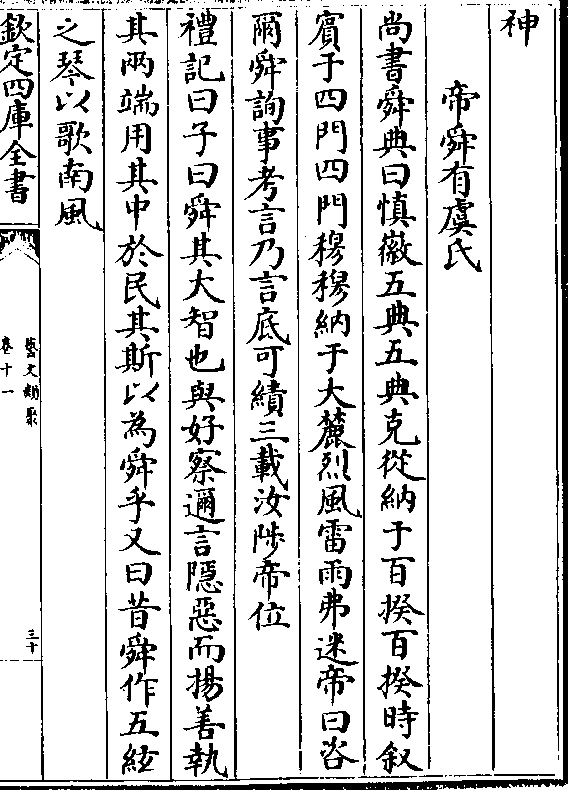 神
帝舜有虞氏
尚書舜典曰慎徽五典五典克從納于百揆百揆時叙
賓于四門四門穆穆納于大麓烈風雷雨弗迷帝曰咨
爾舜詢事考言乃言底可績三載汝陟帝位
禮記曰子曰舜其大智也與好察邇言隠惡而揚善執
其兩端用其中於民其斯以為舜乎又曰昔舜作五絃
之琴以歌南風
欽定四庫全書
藝文類聚
卷十一
三十